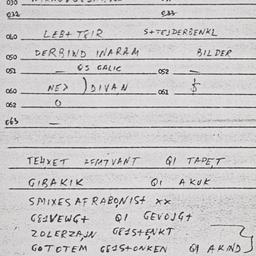 030
032 033
040 LEBT TGIR S+TEJDERBENKL
050 DERBIND INARAM BILDER
051 — GS GALIC 052 —
060 NEX ) DIVAN 061
062 0
063 —
TEHXET QI TAPET
GIBAKIK QI AKUK
SMIXES AF RABONIS+ XX
GEJVEWG+ QI GEVOJG+
ZOLERZAJN GEJS+ENKT
GOTOTEM GEJS+ONKEN QI AKIND